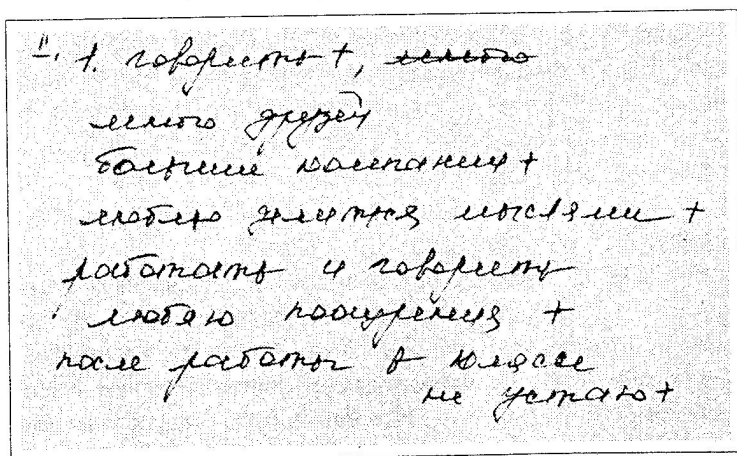 1. говорить +, много
много друзей
большие компании +
люблю делится мыслями +
работать и говорить
люблю поощрения +
после работы в классе
не устаю +